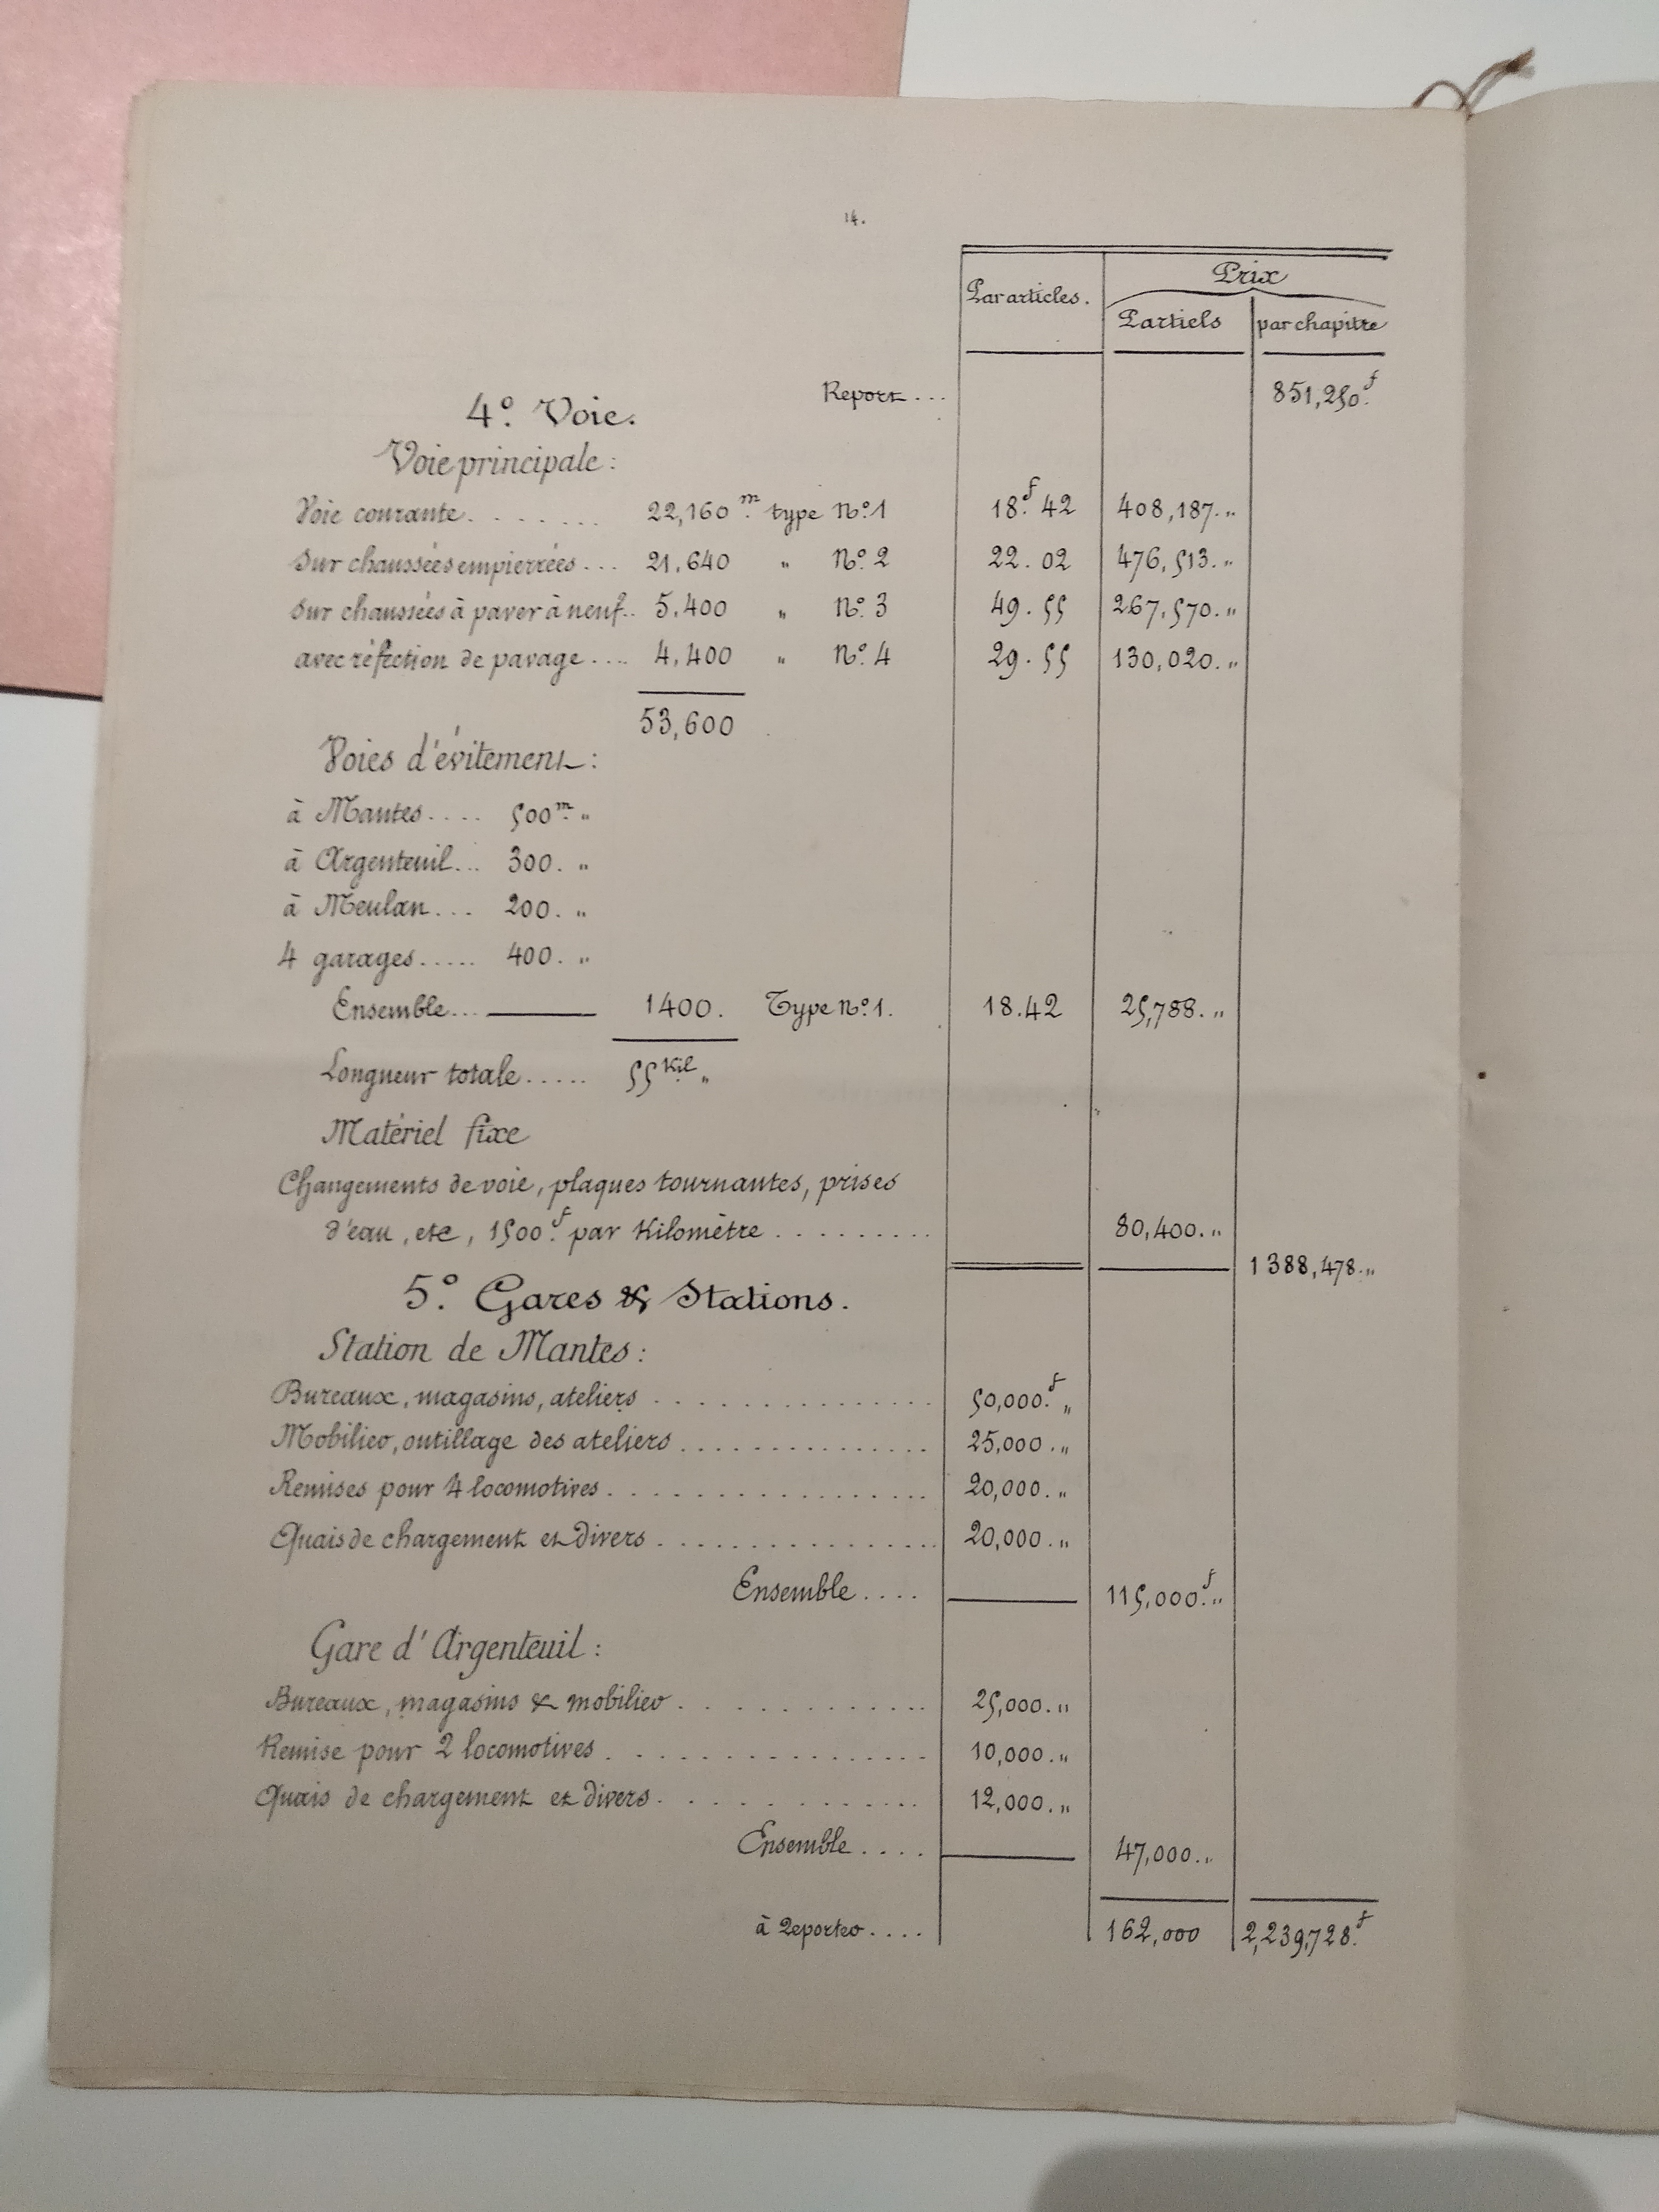 14.
Par articles. Prix
Partiels par chapitre
Report... 851,250.f
4° Voie.
Voie principale :
Voie courante....... 22,160 m. type N°1 18.f 42 408,187. "
Sur chaussées empierrées... 21.640 " N° 2 22.02 476,513. "
Sur chaussées à paver à neuf.. 5.400 " N° 3 49.55 267,570. "
avec réfection de pavage.... 4,400 " N° 4 29.55 130,020. "
53,600
Voies d'évitement :
à Mantes.... 500 m. "
à Argenteuil... 300. "
à Meulan... 200. "
4 garages..... 400. "
Ensemble... 1400. Type N°1. 18.42 25,788. "
Longueur totale..... 55 Kil. "
Matériel fixe
Changements de voie, plaques tournantes, prises
d'eau, etc, 1500.f par Kilomètre......... 80,400. "
1388,478. "
5° Gares & Stations.
Station de Mantes :
Bureaux, magasins, ateliers............... 50,000.f "
Mobilier, outillage des ateliers.............. 25,000. "
Remises pour 4 locomotives.................. 20,000. "
Quais de chargement et divers................ 20,000. "
Ensemble.... 115,000.f "
Gare d'Argenteuil :
Bureaux, magasins & mobilier............ 25,000. "
Remise pour 2 locomotives................ 10,000. "
Quais de chargement et divers............ 12,000. "
Ensemble.... 47,000. "
à Reporter.... 162,000 2,239,728.f